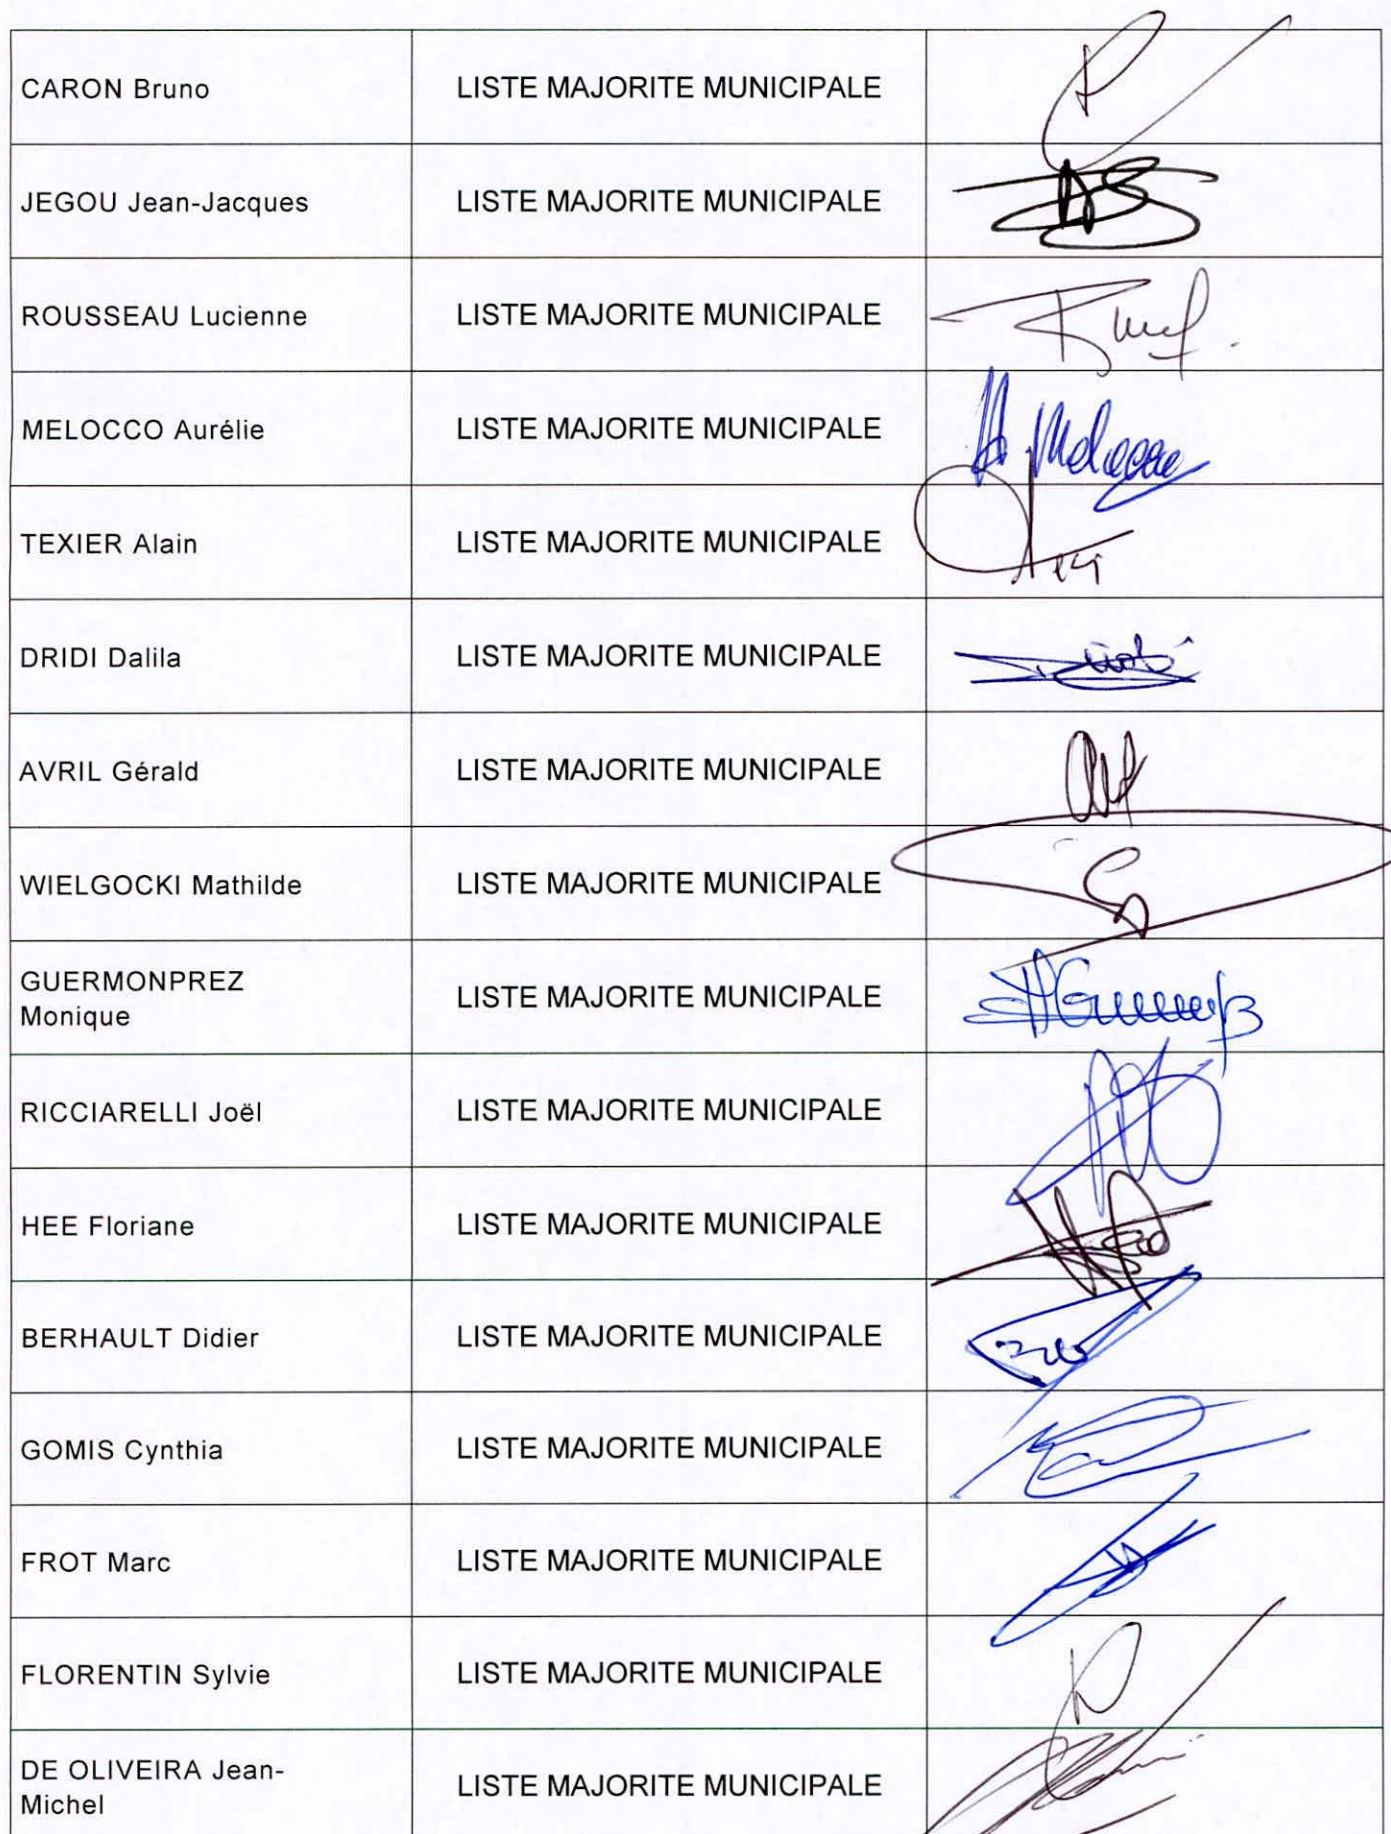 CARON Bruno LISTE MAJORITE MUNICIPALE
JEGOU Jean-Jacques LISTE MAJORITE MUNICIPALE
ROUSSEAU Lucienne LISTE MAJORITE MUNICIPALE
MELOCCO Aurélie LISTE MAJORITE MUNICIPALE
TEXIER Alain LISTE MAJORITE MUNICIPALE
DRIDI Dalila LISTE MAJORITE MUNICIPALE
AVRIL Gérald LISTE MAJORITE MUNICIPALE
WIELGOCKI Mathilde LISTE MAJORITE MUNICIPALE
GUERMONPREZ
Monique LISTE MAJORITE MUNICIPALE
RICCIARELLI Joël LISTE MAJORITE MUNICIPALE
HEE Floriane LISTE MAJORITE MUNICIPALE
BERHAULT Didier LISTE MAJORITE MUNICIPALE
GOMIS Cynthia LISTE MAJORITE MUNICIPALE
FROT Marc LISTE MAJORITE MUNICIPALE
FLORENTIN Sylvie LISTE MAJORITE MUNICIPALE
DE OLIVEIRA Jean-
Michel LISTE MAJORITE MUNICIPALE